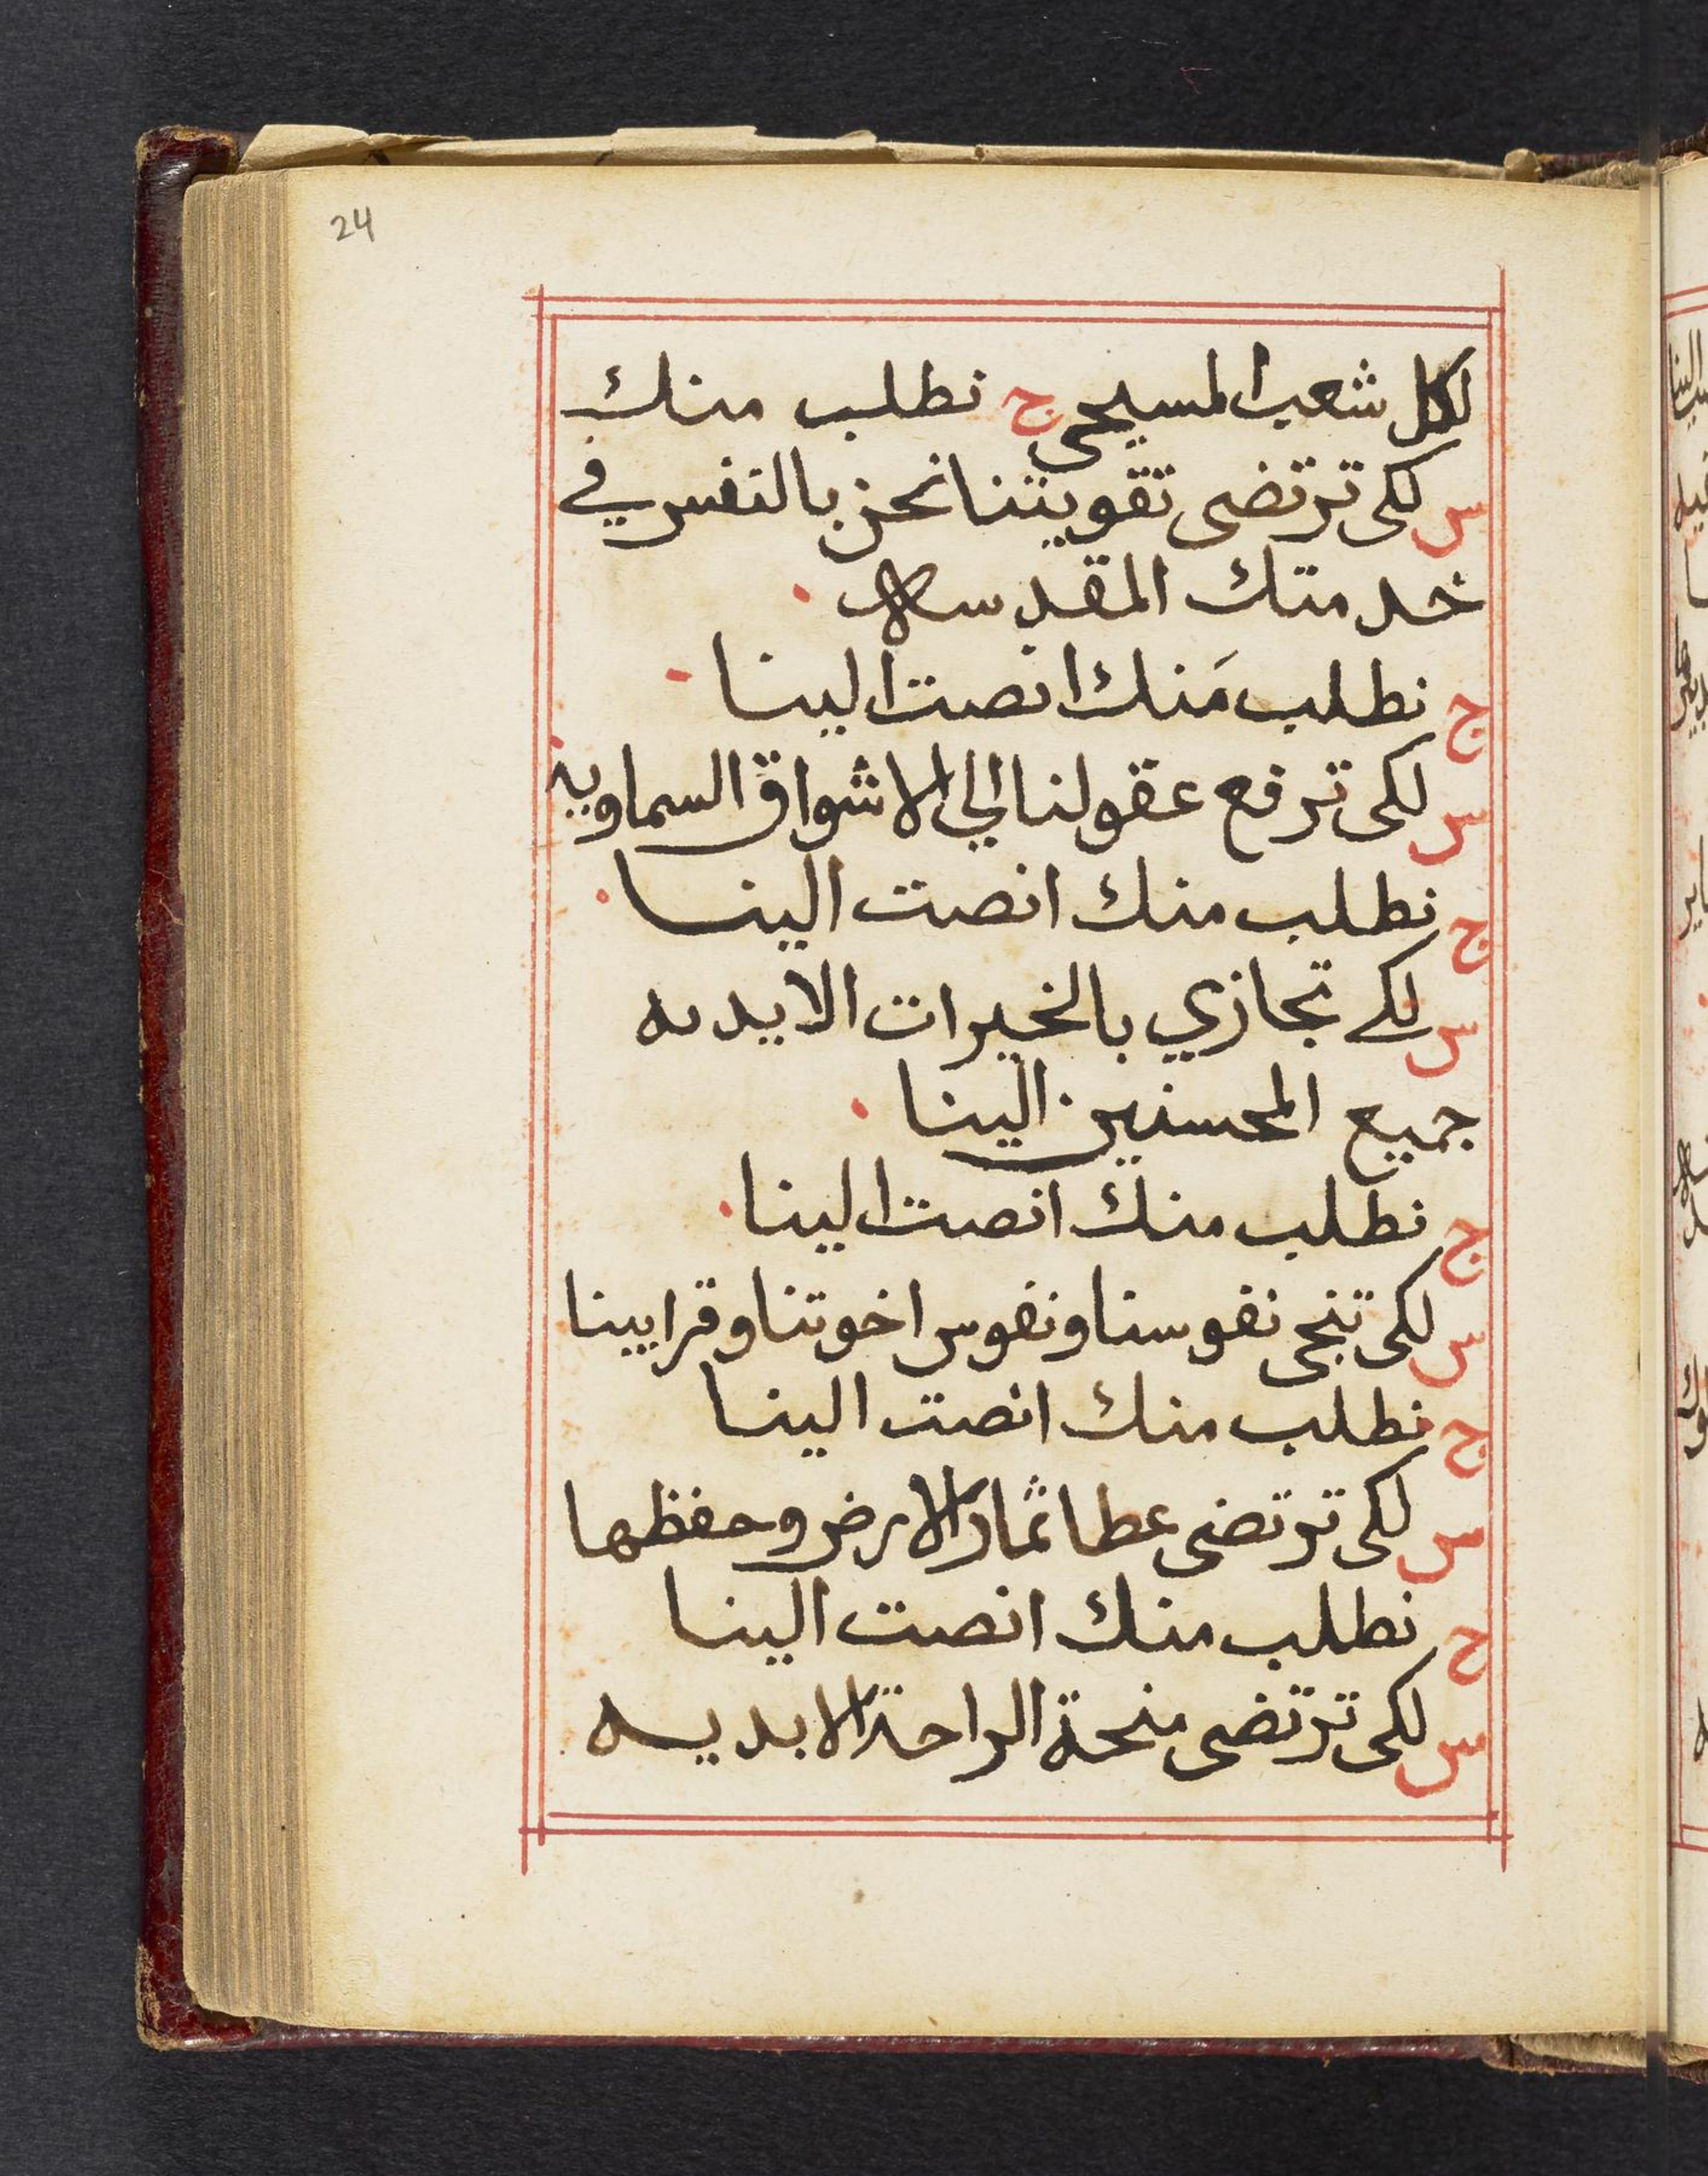 24
لكل شعب المسيحى ج نطلب منك
س لكى ترتضى تقويتنا نحن بالنفس في
خدمتك المقدسه
ج نطلب منك انصت الينا
س لكى ترفع عقولنا الي الاشواق السماويه
ج نطلب منك انصت الينا
س لكے تجازي بالخيرات الابديه
جميع المحسنين الينا
ج نطلب منك انصت الينا
س لكى تنجى نفوسنا ونفوس اخوتنا وقرايبنا
ج نطلب منك انصت الينا
س لكى ترتضى عطا ثمار الارض وحفظها
ج نطلب منك انصت الينا
س لكى ترتضى منحة الراحة الابديه